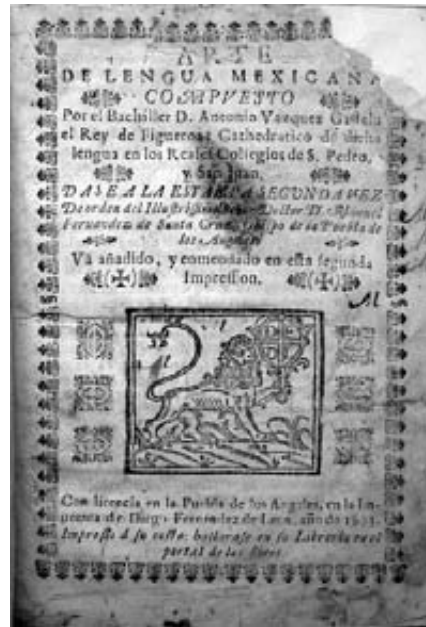 ARTE
DE LENGUA MEXICANA
COMPVESTO
Por el Bachiller D. Antonio Vazquez Gastelu
el Rey de Figueroa: Cathedratico de dicha
lengua en los Reales Collegios de S. Pedro,
y San Juan.
DASE A LA ESTAMPA SEGUNDA VEZ
De orden del Illustrissimo Doctor D. Manuel
Fernandez de Santa Cruz Obispo de la Puebla de
los Angeles
Vá añadido, y emendado en esta segunda
Impression.
Con licencia en la Puebla de los Angeles, en la Im-
prenta de Diego Fernandez de Leon, año de 1693.
Impresso á su costa: hallarase en su Libreria en el
portal de las flores